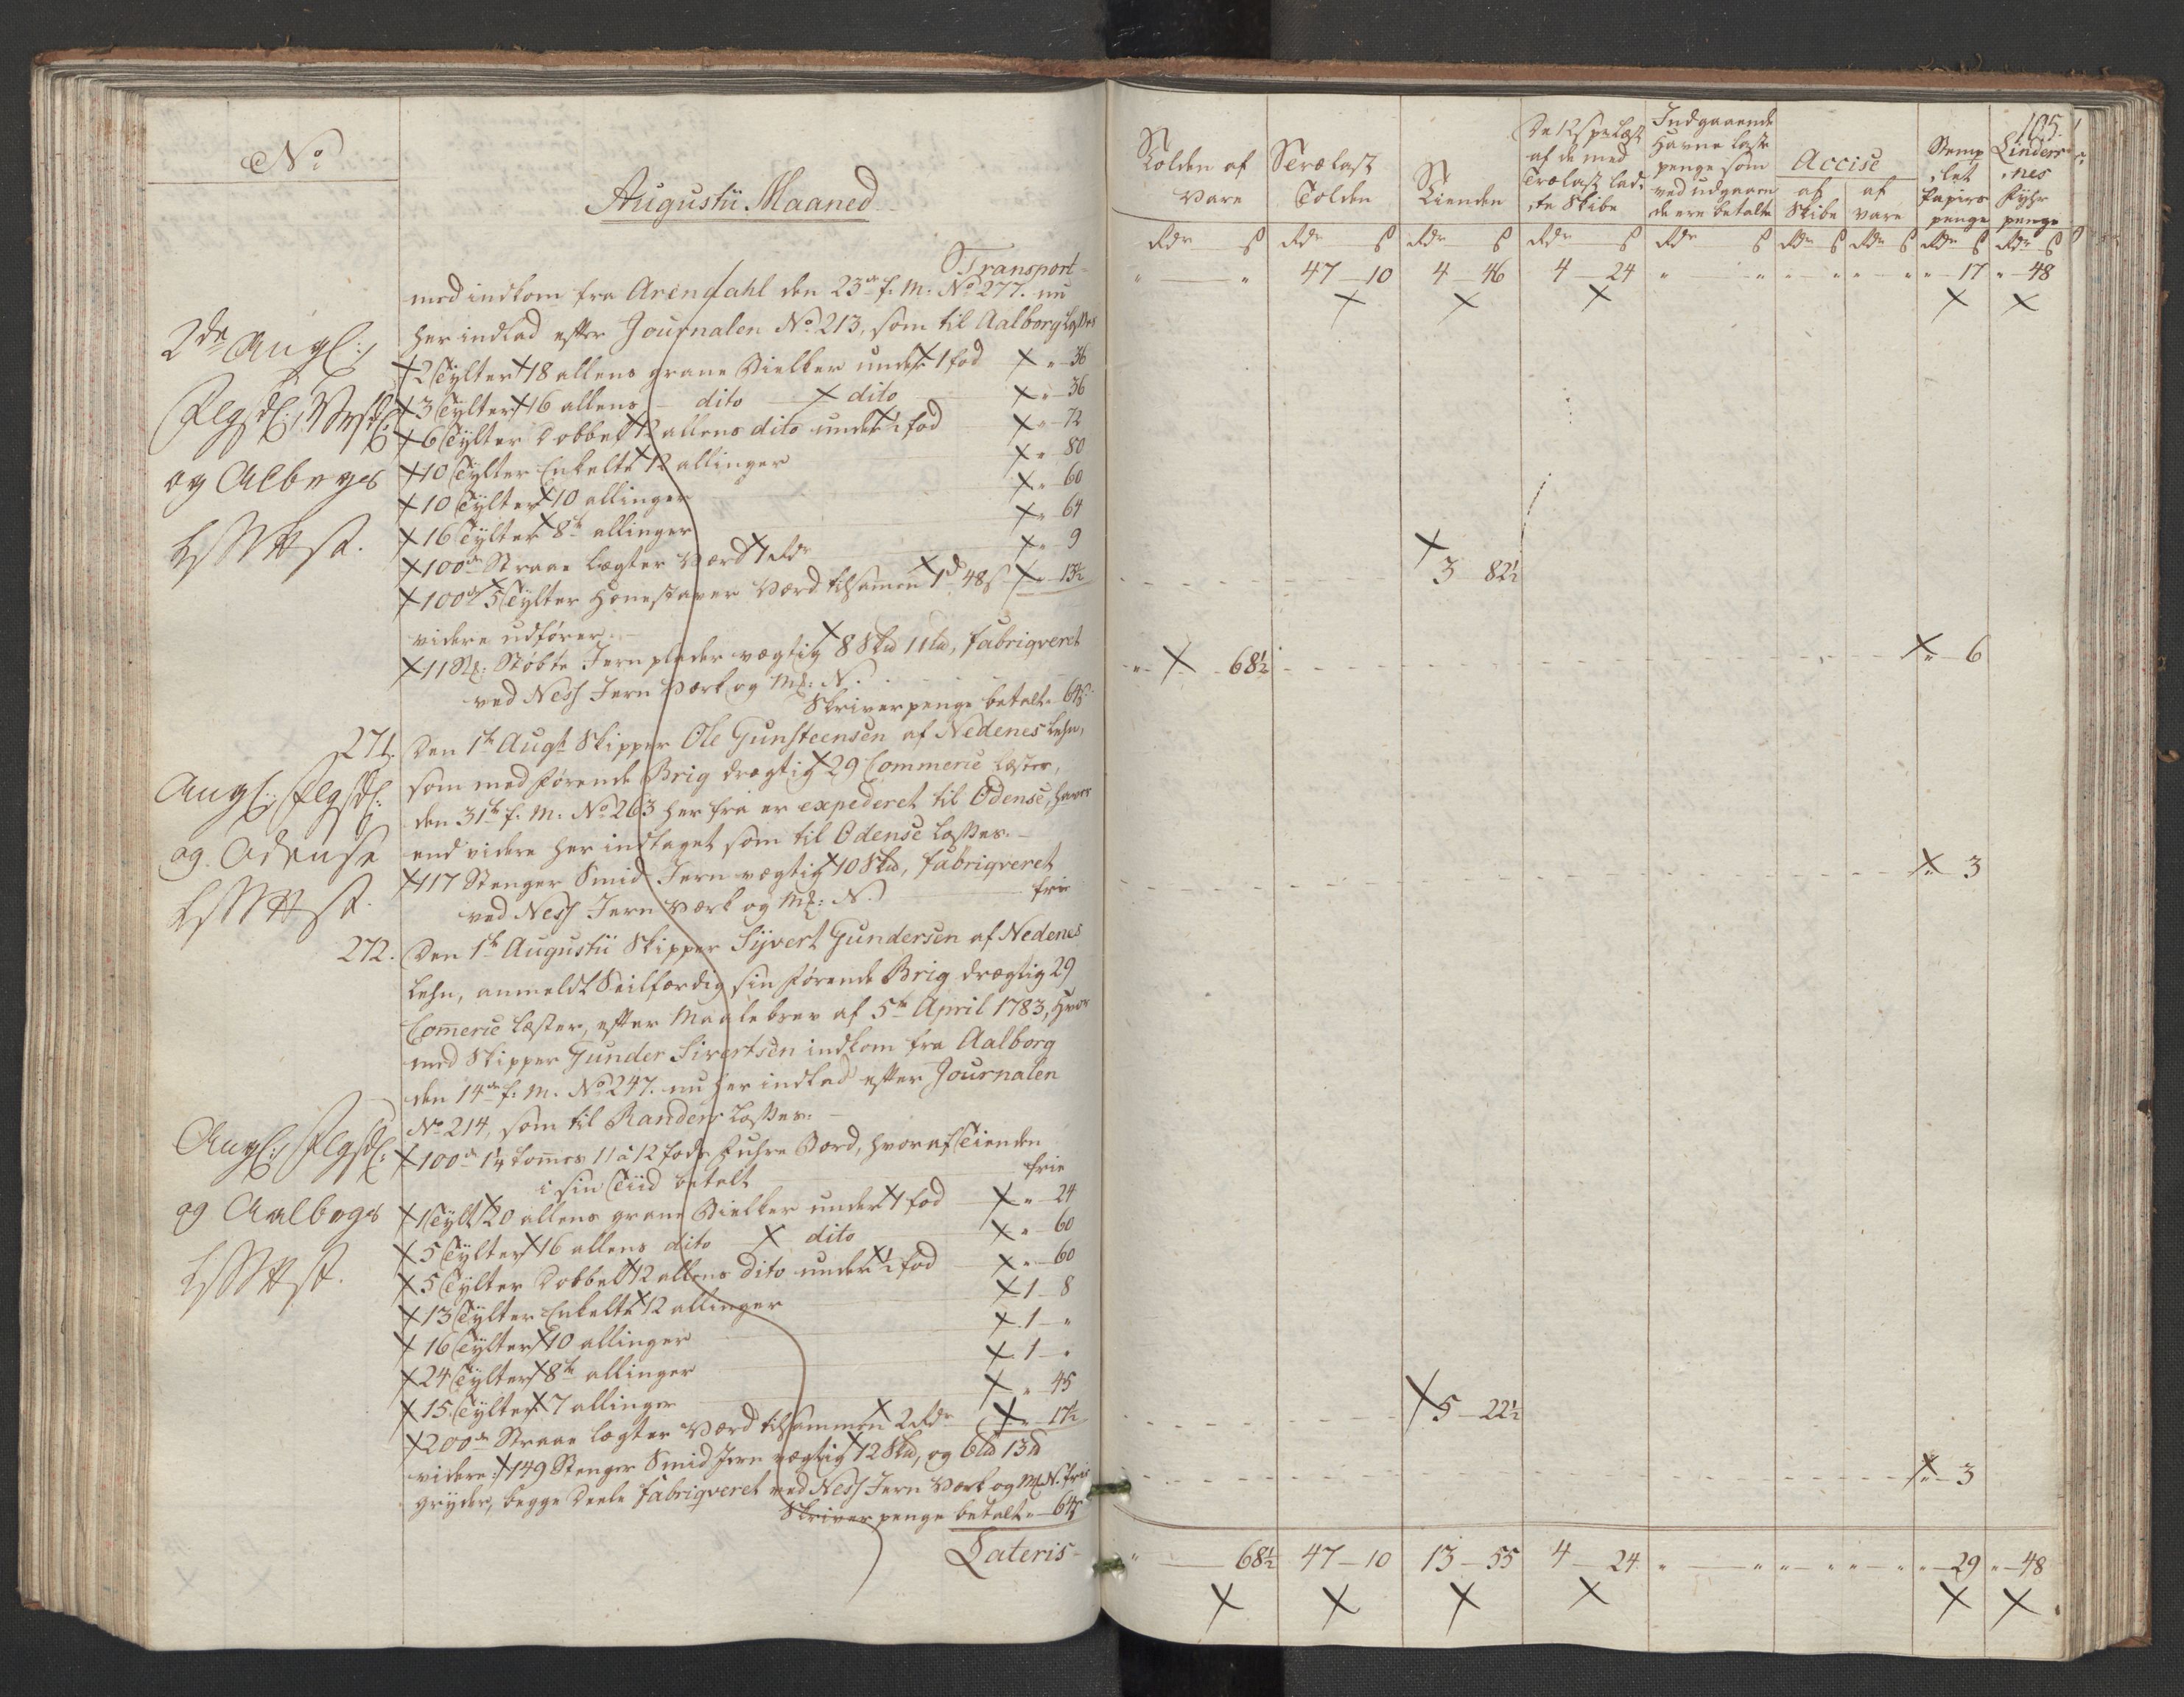 No
Augustii Maaned
Transport
med indkom fra Arendahl den 23de f: M: No 277. nu
her indlad efter Journalen No 213, som til Aalborg Losses
2 Tylter 18 allens grane Bielker under 1 fod " 36
3 Tylter 16 allens dito dito " 36
6 Tylter Dobbelt 12 allens dito under ½ fod " 72
10 Tylter Enkelte 12 allinger " 80
10 Tylter 10 allinger " 60
16 Tylter 8te allinger " 64
100de Straae Lægter Værd 1 Rdr " 9
100de 5 Tylter Hønestaver Værd tilsamen 1 d 48 s " 13½
videre udfører
11 St: Støbte Jern plader vægtig 8 Skd 11 Ld, fabriqveret
ved Ness Jern Værk og Mk: N.
Skriverpenge betalt 64 s
2de Angl:
og Alborgs
271. Den 1te Augt Skipper Ole Gunsteensen af Nedenes Lehn,
som med førende Brig drægtig 29 Commerie Læster,
den 31te f: M: No 263 her fra er expederet til Odense, haver
end videre her indtaget som til Odense Losses.
117 Stenger Smid Jern vægtig 10 Skd, fabriqveret
ved Ness Jern Værk og Mk: N. frie
Angl:
og Odense
272. Den 1te Augustii Skipper Sijvert Gundersen af Nedenes
Lehn, anmeldt Seilfærdig sin førende Brig drægtig 29
Comerie Læster, efter Maalebrev af 5te April 1783, hvor
med Skipper Gunder Sivertsen indkom fra Aalborg
den 14de f: M: No 247. nu her indlad efter Journalen
No 214, som til Randers Losses.
100de 1¼ tomes 11 a 12 fods Fuhre Bord, hvoraf Tienden
i sin Tiid betalt frie
1 Tylt 20 allens grane Bielker under 1 fod " 24
5 Tylter 16 allens dito dito " 60
5 Tylter Dobbelt 12 allens dito under ½ fod " 60
13 Tylter Enkelte 12 allinger 1 8
16 Tylter 10 allinger 1 "
24 Tylter 8te allinger 1 "
15 Tylter 7 allinger " 45
200de Straae Lægter Værd tilsammen 2 Rdr " 17½
videre: 149 Stenger Smid Jern vægtig 12 Skd, og 6 Ld 13 d
gryder, begge Deele fabriqveret ved Ness Jern Værk og Mk N. frie
Skriver penge betalt " 64 s
Angl:
og Aalborgs
Lateris
105.
Tolden af Vare
Trælast Tolden
Tienden
De 12 s pr Læst af de med Trælast lad,te Skibe
Indgaaende Havne Laste penge som ved udgaaende ere betalte
Accise
af Skibe
af vare
Stemp,let Papirs penge
Linders,nes Fyhr penge
Rdr s Rdr s Rdr s Rdr s Rdr s Rdr s Rdr s Rdr s Rdr s
" " 47 10 4 46 4 24 " " " " " " " 17 " 48
3 82½
" 68½ " 6
" 3
5 22½
" 3
" 68½ 47 10 13 55 4 24 " " " " " " " 29 " 48